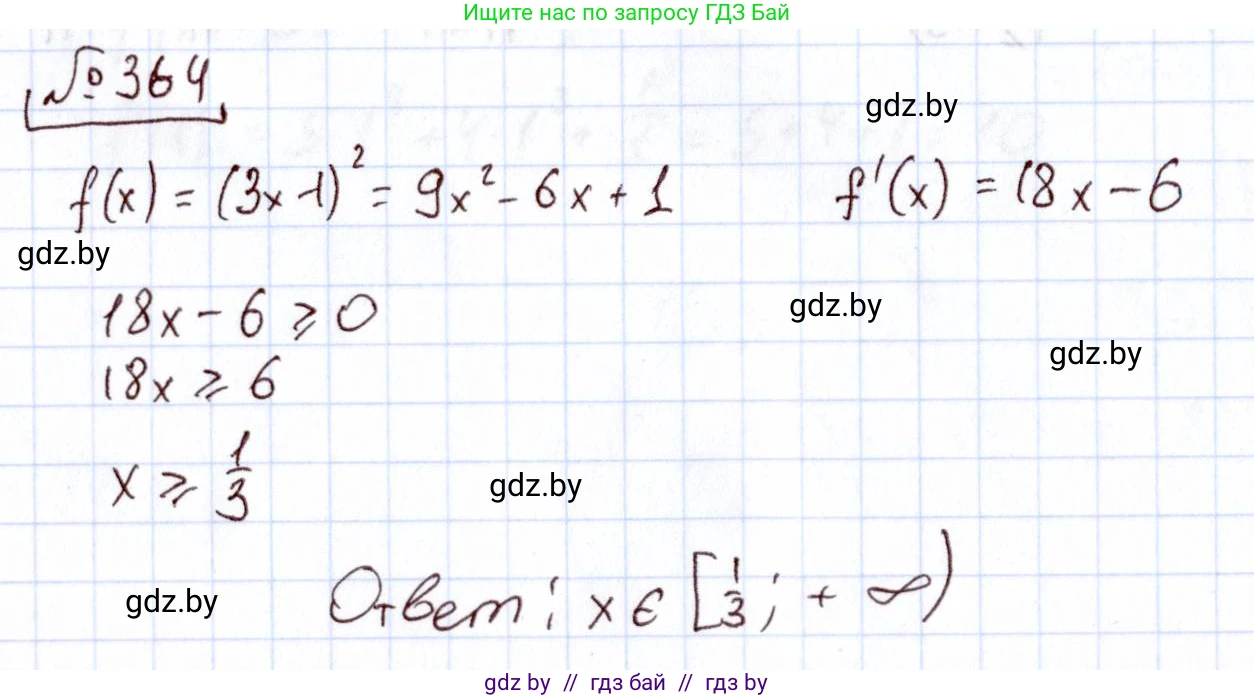 Ищите нас по запросу ГДЗ Бай
№364
gdz.by
f(x) = (3x-1)² = 9x² - 6x + 1
f'(x) = 18x - 6
gdz.by
18x - 6 ⩾ 0
gdz.by
gdz.by
18x ⩾ 6
x ⩾ 1/3
gdz.by
gdz.by
Ответ: x ∈ [1/3; + ∞)
gdz by // гдз бай // гдз by